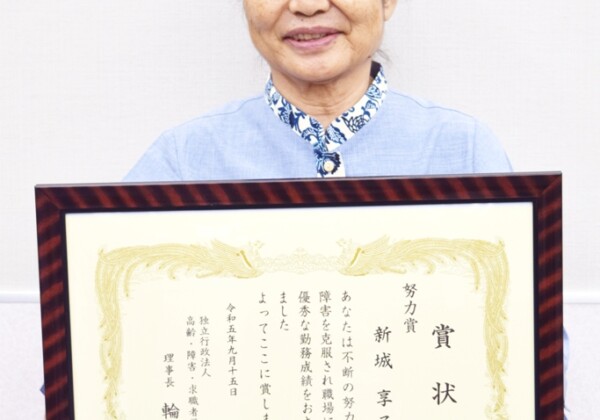 賞状
努力賞
新城 享
あなたは不断の努力
障害を克服され職場に
優秀な勤務成績をお
ました
よってここに賞しま
令和五年九月十五日
独立行政法人
高齢・障害・求職者
理事長 輪